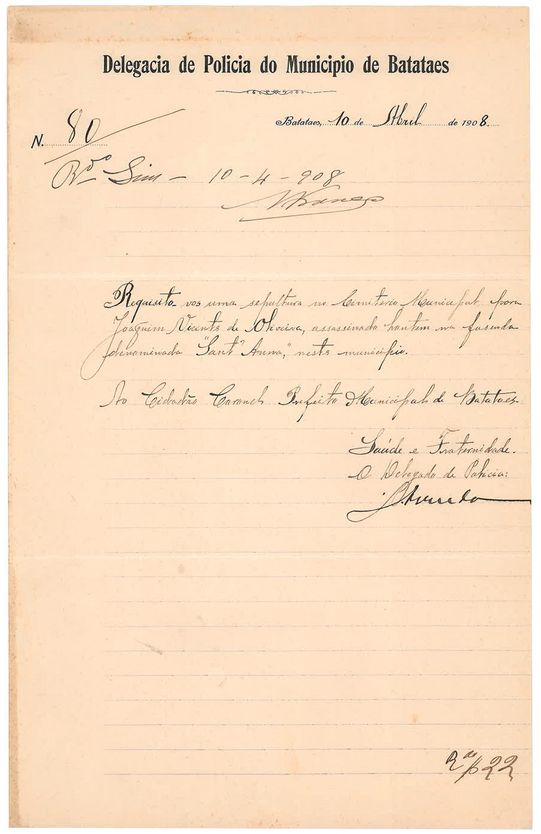 Delegacia de Policia do Municipio de Batataes
Batataes, 10 de Abril de 1908.
N. 80
Rdo Sim - 10-4-908
Requisito vos uma sepultura no Cemiterio Municipal para
Joaquim Vicente de Oliveira, assassinado hontem na fasenda
denominada "Sant' Anna," neste municipio.
Ao Cidadão Coronel Prefeito Municipal de Batataes
Saúde e Fraternidade.
O Delegado de Policia:
22